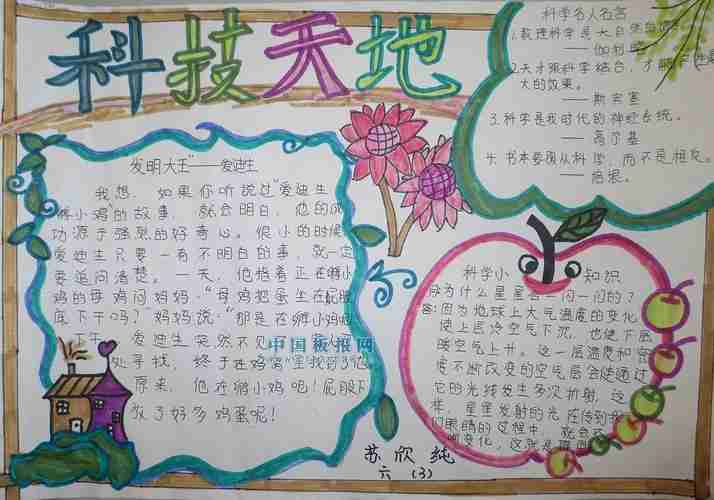 科技天地
发明大王"——爱迪生
我想，如果你听说过"爱迪生
孵小鸡的故事，就会明白，他的成
功源于强烈的好奇心。很小的时候
爱迪生只要一有不明白的事，就一定
要追问清楚。一天，他指着正在孵小
鸡的母鸡问妈妈："母鸡把蛋坐在屁股
底下干吗？"妈妈说："那是在孵小鸡呢
下午，爱迪生突然不见
处寻找，终于在妈窝里找到了他
原来，他在孵小鸡呢！屁股下
放了好多鸡蛋呢！
中国板报网
科学名人名言
1.数理科学是大自然
——伽利略
2.天才跟科学结合，才能
大的效果。
——斯宾塞
3.科学是我时代的神经系统。
——高尔基
4.书本要现从科学，而不是相反。
——培根。
科学小知识
为什么星星会一闪一闪的？
答：因为地球上大气温度的变化
使上层冷空气下沉，也使下层
暖空气上升。这一层温度和密
度不断改变的空气层会使通过
它的光线发生多次折射，这
样，星星发射的光在传到我
们眼睛的过程中，就会
变化，这就是
苏欣纯
六（3）